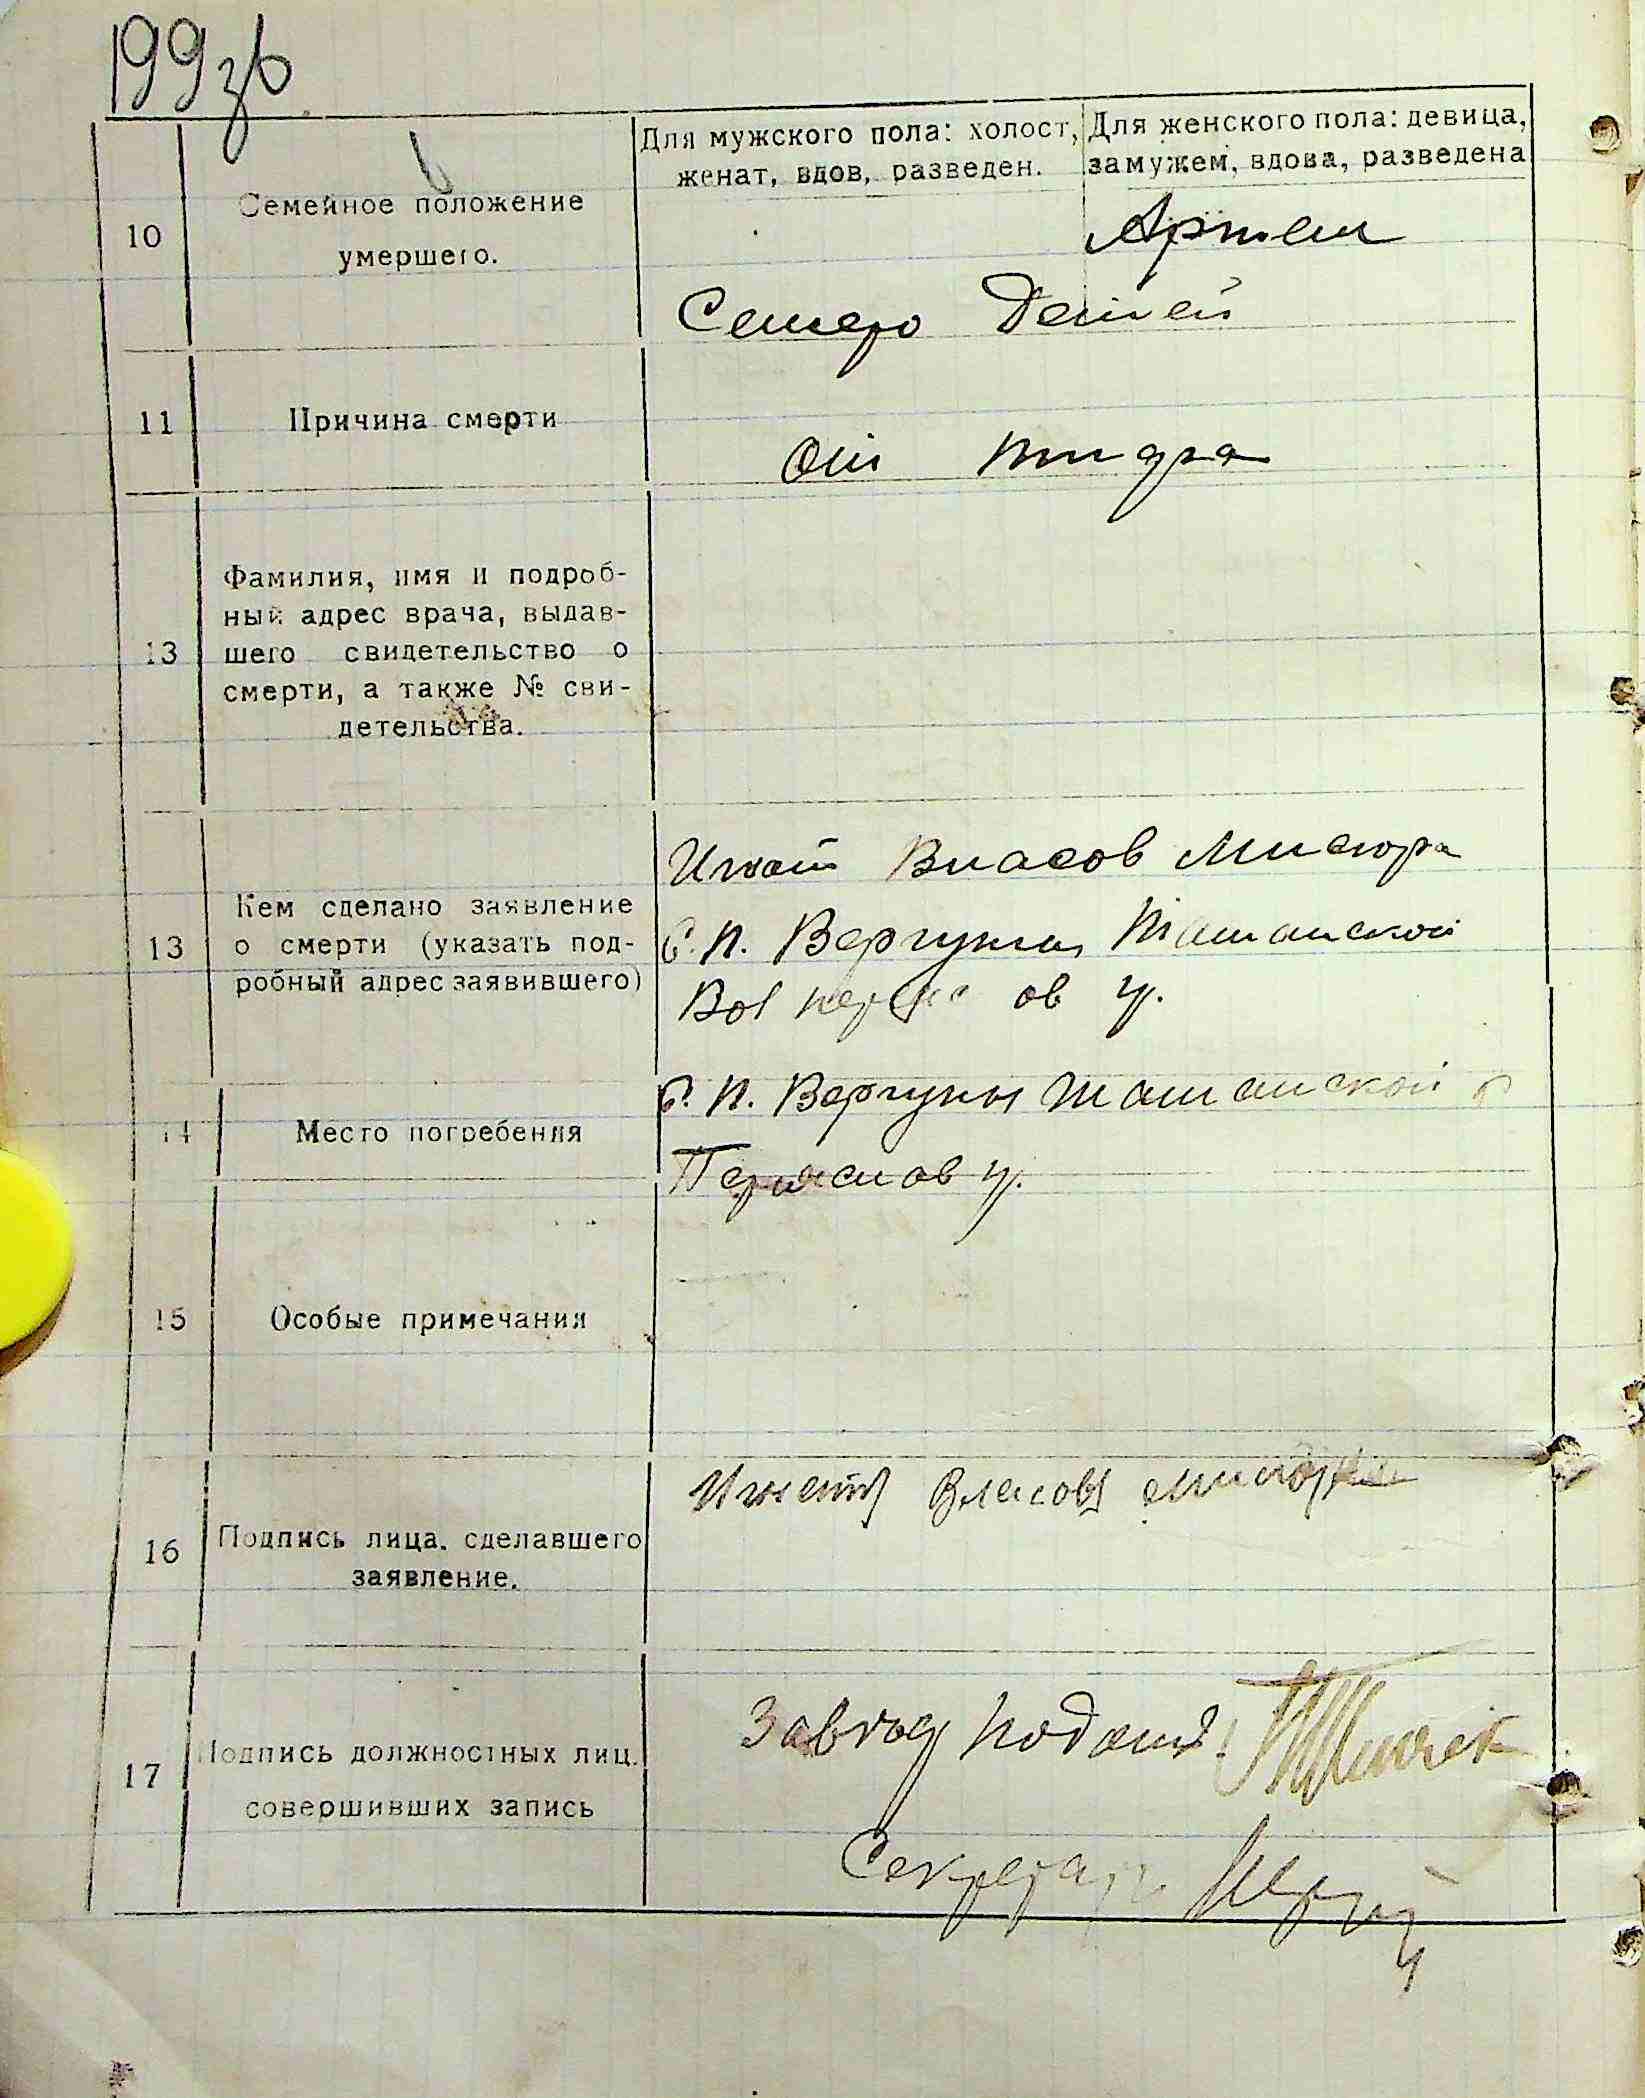 199зв
10
Семейное положение
умершего.
Для мужского пола: холост,
женат, вдов, разведен.
Для женского пола: девица,
замужем, вдова, разведена
Артем
Семеро Детей
11
Причина смерти
От тифа
13
Фамилия, имя и подроб-
ный адрес врача, выдав-
шего свидетельство о
смерти, а также № сви-
детельства.
13
Кем сделано заявление
о смерти (указать под-
робный адрес заявившего)
Игнат Власов Мисюра
С. П. Вергуны Ташанской
Вол ов у.
14
Место погребения
С. П. Вергуны Ташанской в
Переяслов у.
15
Особые примечания
16
Подпись лица, сделавшего
заявление.
Игнат Власов Мисюра
17
Подпись должностных лиц.
совершивших запись
Завгод
Секретарь